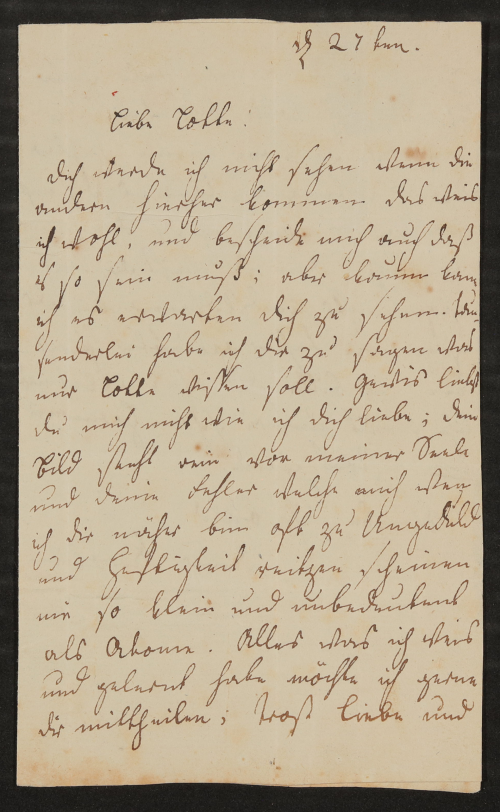 d 27ten.
Liebe Lotte!
Dich werde ich nicht sehen wenn die
andern hierher kommen das weis
ich wohl, und bescheide mich auch daß
es so sein muß; aber kaum kan
ich es erwarten dich zu sehen. Tau-
senderlei habe ich dir zu sagen was
nur Lotte wissen soll. Gewis liebst
du mich nicht wie ich dich liebe; dein
Bild steht rein vor meiner Seele
und deine Fehler welche mich wen
ich dir näher bin oft zu Ungeduld
und Heftigkeit reitzen scheinen
mir so klein und unbedeutent
als Atome. Alles was ich weis
und gelernt habe möchte ich gerne
dir mittheilen; Trost Liebe und